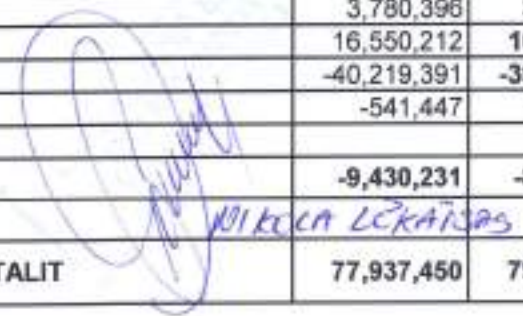 3,780,396
16,550,212 1
-40,219,391 -3
-541,447
-9,430,231 -
NIKOLA LËKATSAS
TALIT 77,937,450 7